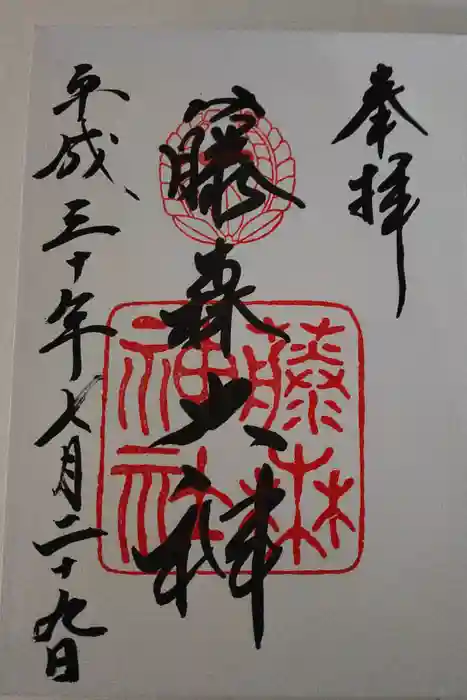 奉拝
藤森大神
藤森神社
平成三十年七月二十九日